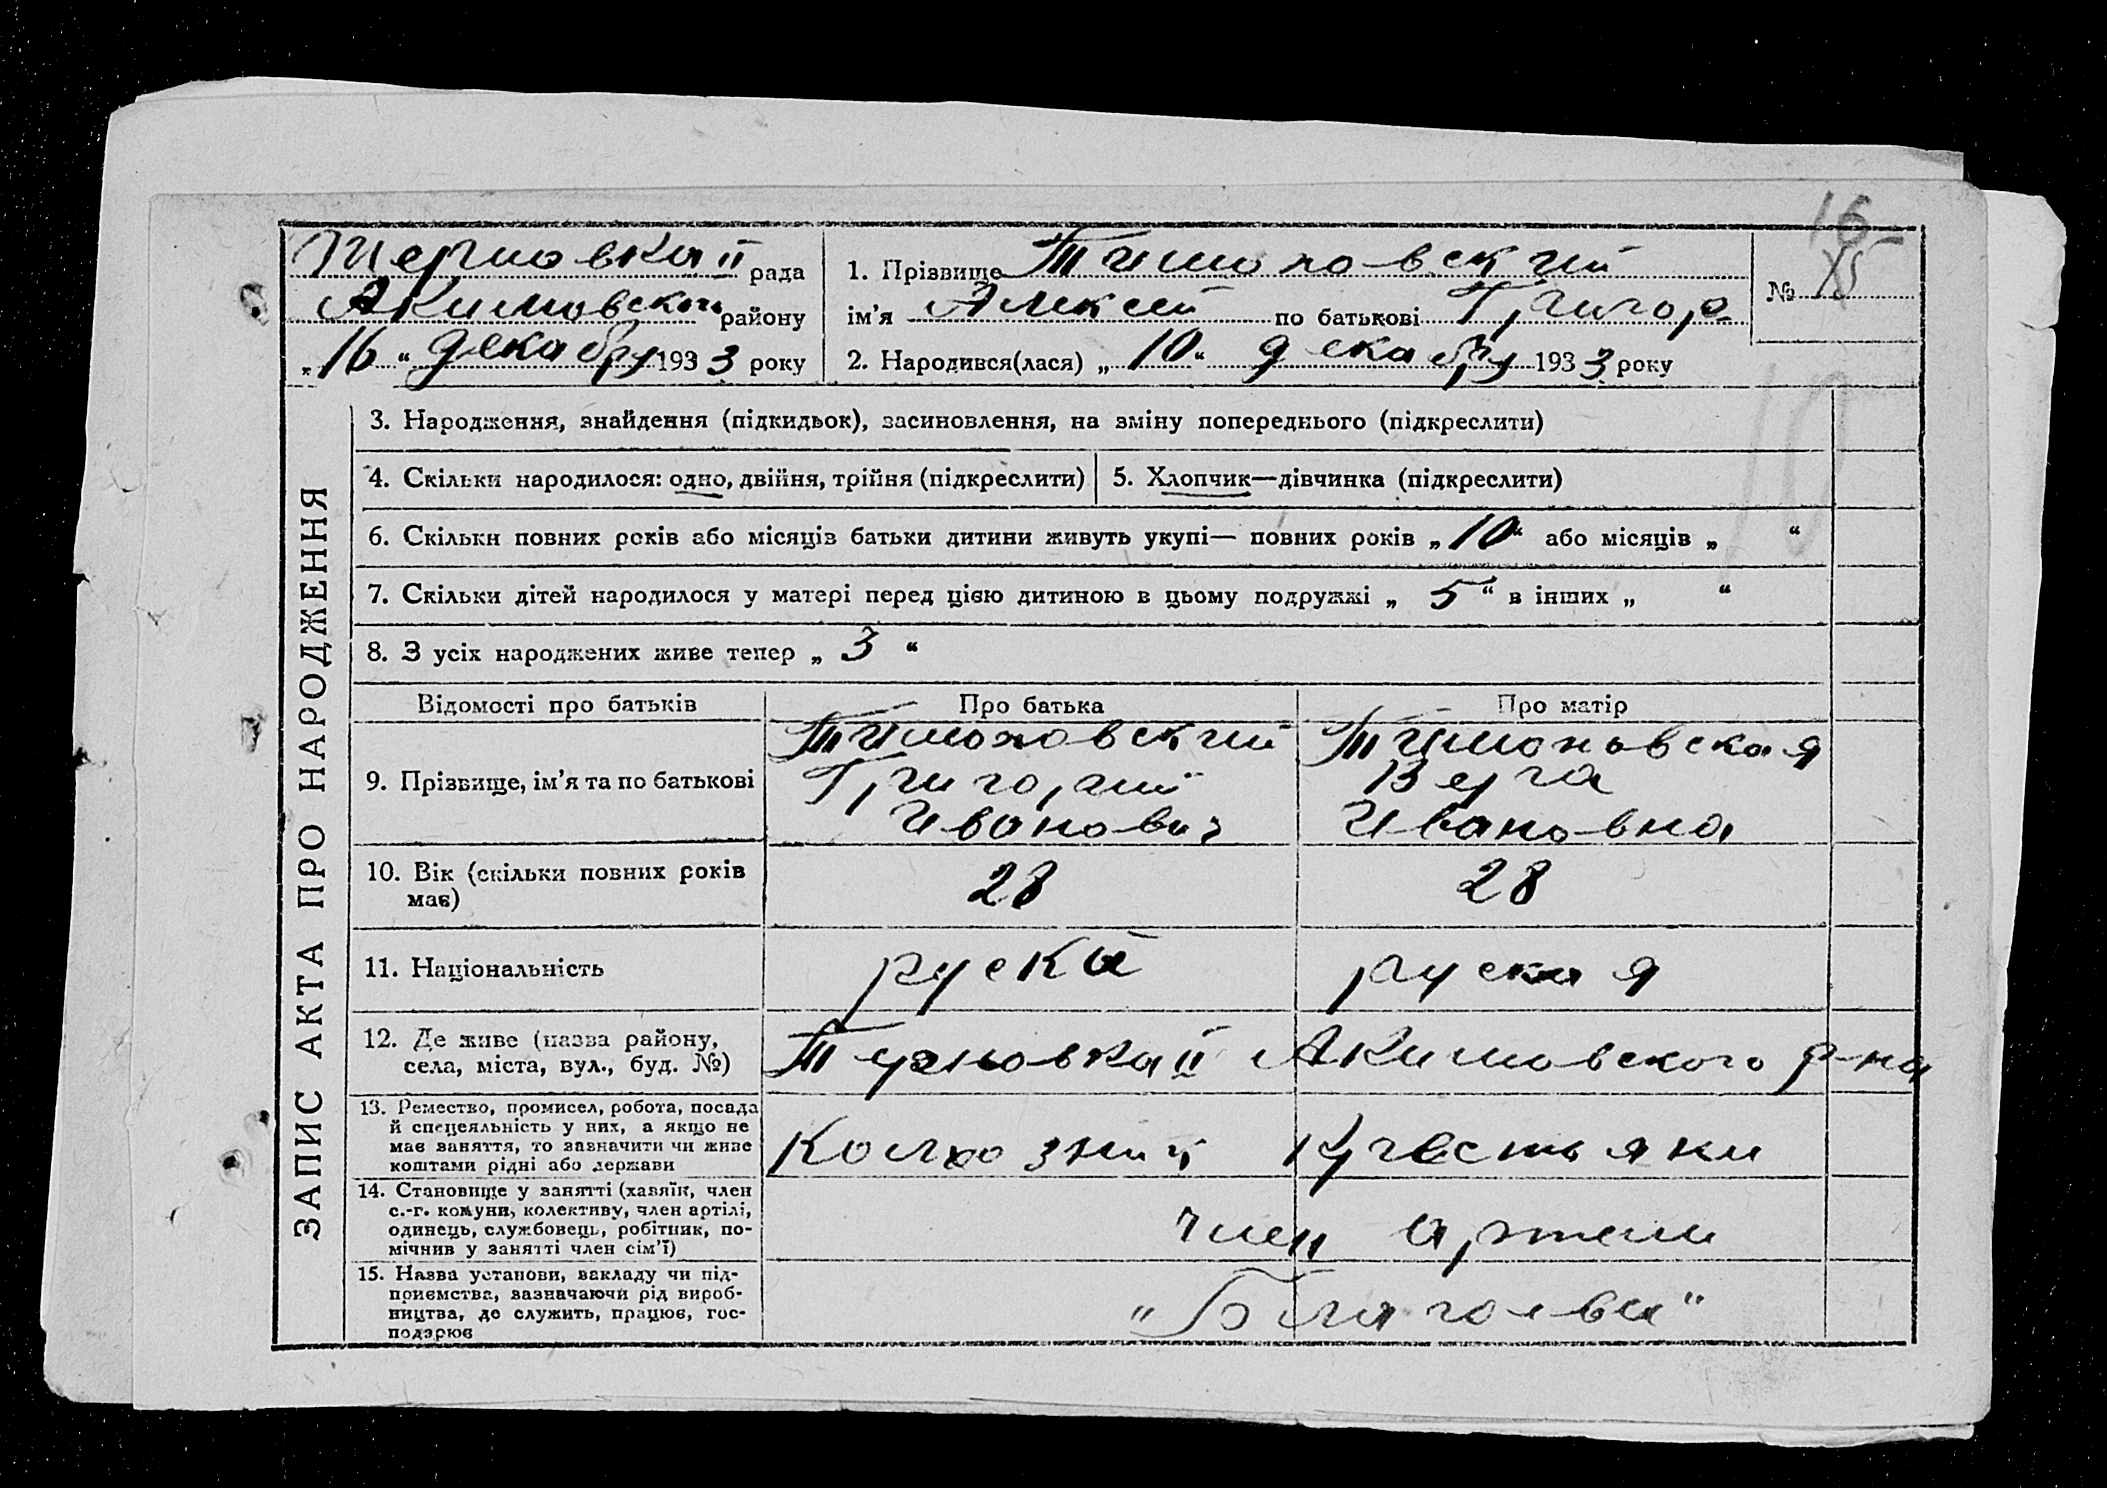 Терновка II рада
Акимовского району
„16“ декабру 1933 року
1. Прізвище Тимоновский
ім’я Алексей по батькові Григор.
2. Народився(лася) „10“ декабру 1933 року
№ 15
16
10
ЗАПИС АКТА ПРО НАРОДЖЕННЯ
3. Народження, знайдення (підкидьок), засиновлення, на зміну попереднього (підкреслити)
4. Скільки народилося: одно, двійня, трійня (підкреслити)
5. Хлопчик—дівчинка (підкреслити)
6. Скільки повних років або місяців батьки дитини живуть укупі— повних років „10“ або місяців „ “
7. Скільки дітей народилося у матері перед цією дитиною в цьому подружжі „5“ в інших „ “
8. З усіх народжених живе тепер „3“
Відомості про батьків Про батька Про матір
9. Прізвище, ім’я та по батькові
Тимоновский
Григорий
Иванович
Тимоновская
Вера
Ивановна
10. Вік (скільки повних років
має)
28 28
11. Національність руский руская
12. Де живе (назва району,
села, міста, вул., буд. №)
Терновка II Акимовского р-на
13. Ремество, промисел, робота, посада
й спецеяльність у них, а якщо не
має заняття, то зазначити чи живе
коштами рідні або держави
Колхозний Крестьяки
14. Становище у занятті (хазяїн, член
с.-г. комуни, колективу, член артілі,
одинець, службовець, робітник, по-
мічнив у занятті член сім’ї)
член артели
15. Назва установи, закладу чи під-
приємства, зазначаючи рід вироб-
ництва, де служить, працює, гос-
подарює